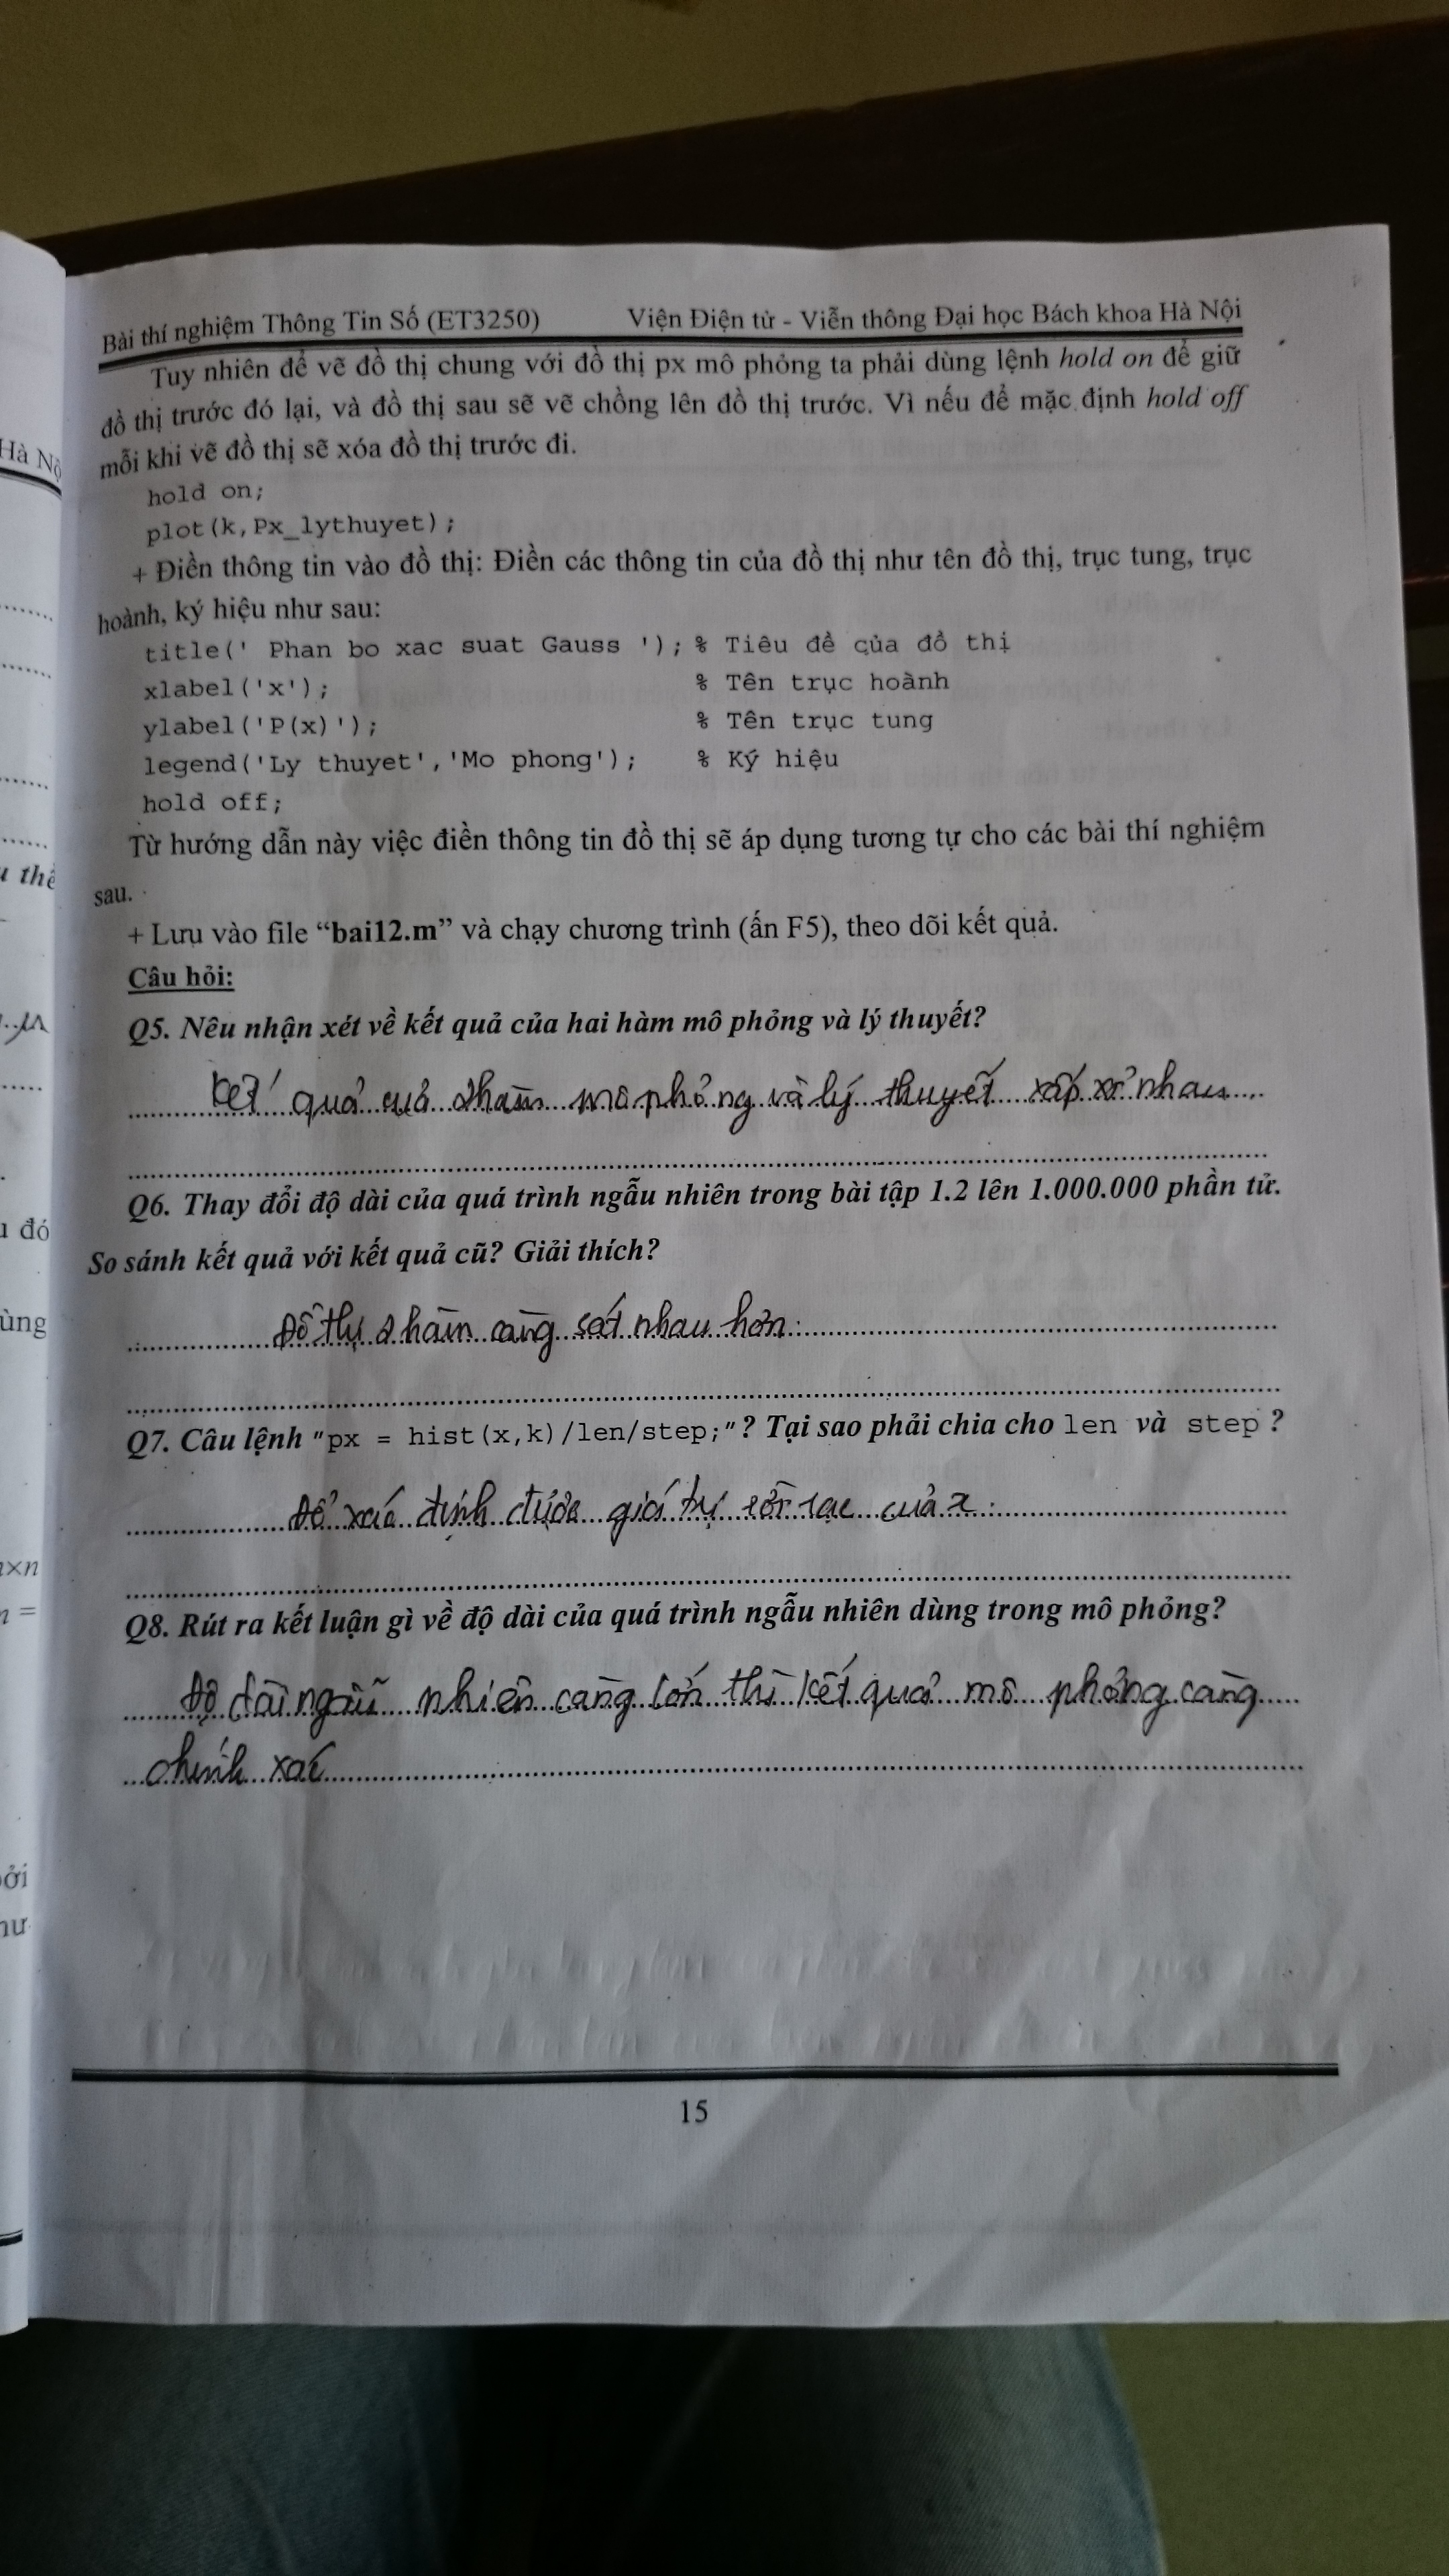 Bài thí nghiệm Thông Tin Số (ET3250) Viện Điện tử - Viễn thông Đại học Bách khoa Hà Nội
Tuy nhiên để vẽ đồ thị chung với đồ thị px mô phỏng ta phải dùng lệnh hold on để giữ
đồ thị trước đó lại, và đồ thị sau sẽ vẽ chồng lên đồ thị trước. Vì nếu để mặc định hold off
mỗi khi vẽ đồ thị sẽ xóa đồ thị trước đi.
hold on;
plot(k,Px_lythuyet);
+ Điền thông tin vào đồ thị: Điền các thông tin của đồ thị như tên đồ thị, trục tung, trục
hoành, ký hiệu như sau:
title(' Phan bo xac suat Gauss '); % Tiêu đề của đồ thị
xlabel('x'); % Tên trục hoành
ylabel('P(x)'); % Tên trục tung
legend('Ly thuyet','Mo phong'); % Ký hiệu
hold off;
Từ hướng dẫn này việc điền thông tin đồ thị sẽ áp dụng tương tự cho các bài thí nghiệm
sau.
+ Lưu vào file “bai12.m” và chạy chương trình (ấn F5), theo dõi kết quả.
Câu hỏi:
Q5. Nêu nhận xét về kết quả của hai hàm mô phỏng và lý thuyết?
Kết quả của 2 hàm mô phỏng và lý thuyết xấp xỉ nhau
Q6. Thay đổi độ dài của quá trình ngẫu nhiên trong bài tập 1.2 lên 1.000.000 phần tử.
So sánh kết quả với kết quả cũ? Giải thích?
Đồ thị 2 hàm càng sát nhau hơn.
Q7. Câu lệnh "px = hist(x,k)/len/step;"? Tại sao phải chia cho len và step ?
Để xác định được giá trị rời rạc của x.
Q8. Rút ra kết luận gì về độ dài của quá trình ngẫu nhiên dùng trong mô phỏng?
Độ dài ngẫu nhiên càng lớn thì kết quả mô phỏng càng
chính xác
15
Hà Nộ
u thể
u đó
ùng
n×n
n =
ởi
hư